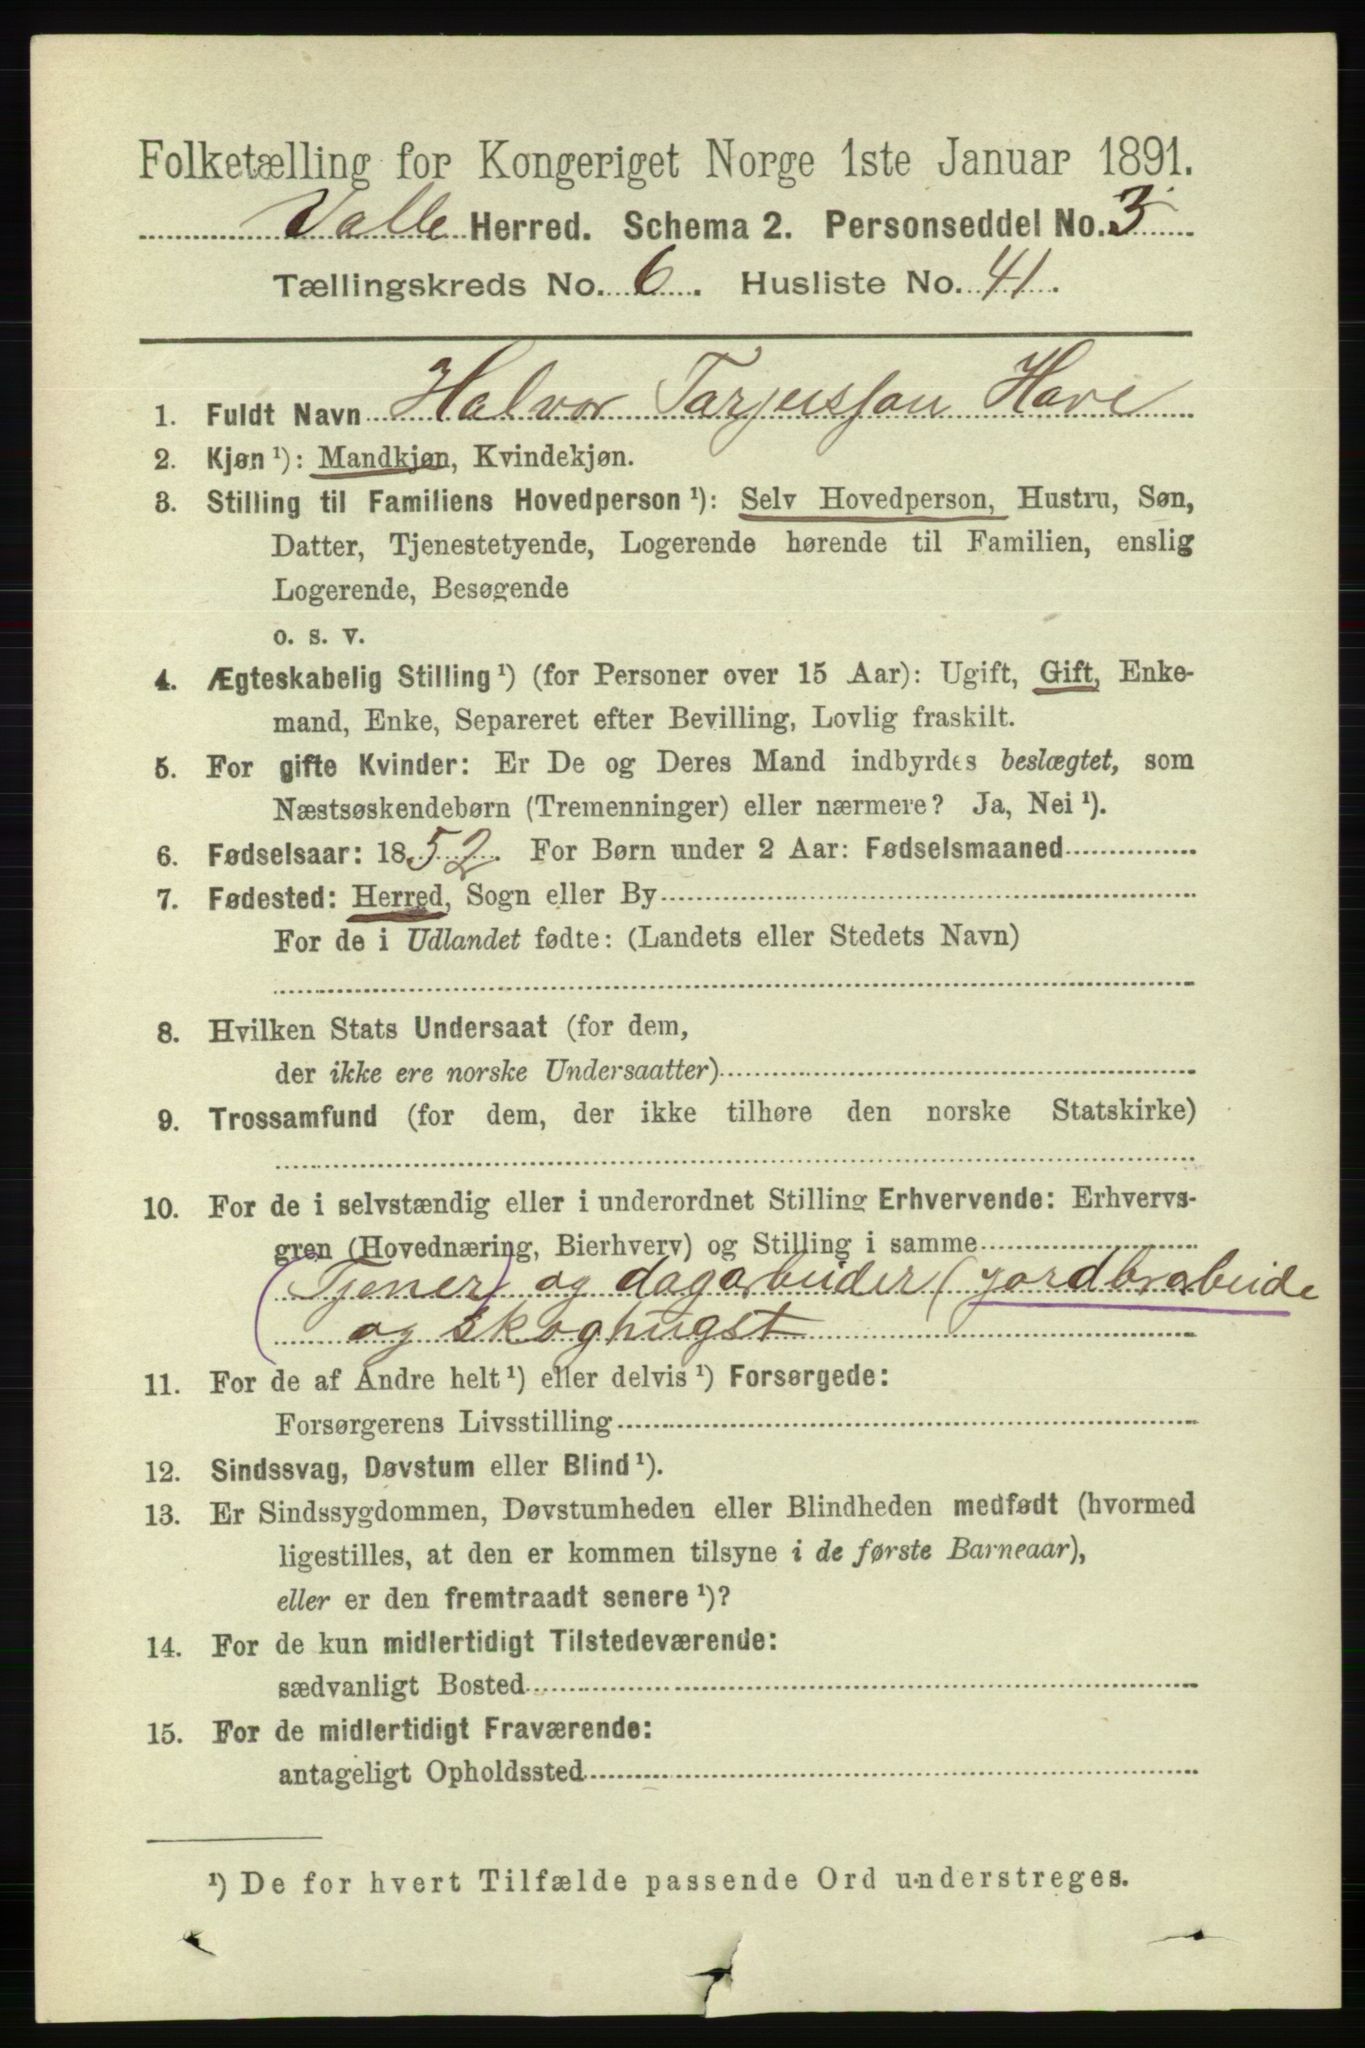 Folketælling for Kongeriget Norge 1ste Januar 1891.
Valle Herred. Schema 2. Personseddel No. 3
Tællingskreds No. 6. Husliste No. 41.
1. Fuldt Navn Halvor Tarjeisson Hove
2. Kjøn ¹): Mandkjøn, Kvindekjøn.
3. Stilling til Familiens Hovedperson ¹): Selv Hovedperson, Hustru, Søn,
Datter, Tjenestetyende, Logerende hørende til Familien, enslig
Logerende, Besøgende
o. s. v.
4. Ægteskabelig Stilling ¹) (for Personer over 15 Aar): Ugift, Gift, Enke-
mand, Enke, Separeret efter Bevilling, Lovlig fraskilt.
5. For gifte Kvinder: Er De og Deres Mand indbyrdes beslægtet, som
Næstsøskendebørn (Tremenninger) eller nærmere? Ja, Nei ¹).
6. Fødselsaar: 1852. For Børn under 2 Aar: Fødselsmaaned
7. Fødested: Herred, Sogn eller By
For de i Udlandet fødte: (Landets eller Stedets Navn)
8. Hvilken Stats Undersaat (for dem,
der ikke ere norske Undersaatter)
9. Trossamfund (for dem, der ikke tilhøre den norske Statskirke)
10. For de i selvstændig eller i underordnet Stilling Erhvervende: Erhvervs-
gren (Hovednæring, Bierhverv) og Stilling i samme
(Tjener) og dagarbeider (jordbrabeide
og skoghugst
11. For de af Andre helt ¹) eller delvis ¹) Forsørgede:
Forsørgerens Livsstilling
12. Sindssvag, Døvstum eller Blind ¹).
13. Er Sindssygdommen, Døvstumheden eller Blindheden medfødt (hvormed
ligestilles, at den er kommen tilsyne i de første Barneaar),
eller er den fremtraadt senere ¹)?
14. For de kun midlertidigt Tilstedeværende:
sædvanligt Bosted
15. For de midlertidigt Fraværende:
antageligt Opholdssted
¹) De for hvert Tilfælde passende Ord understreges.